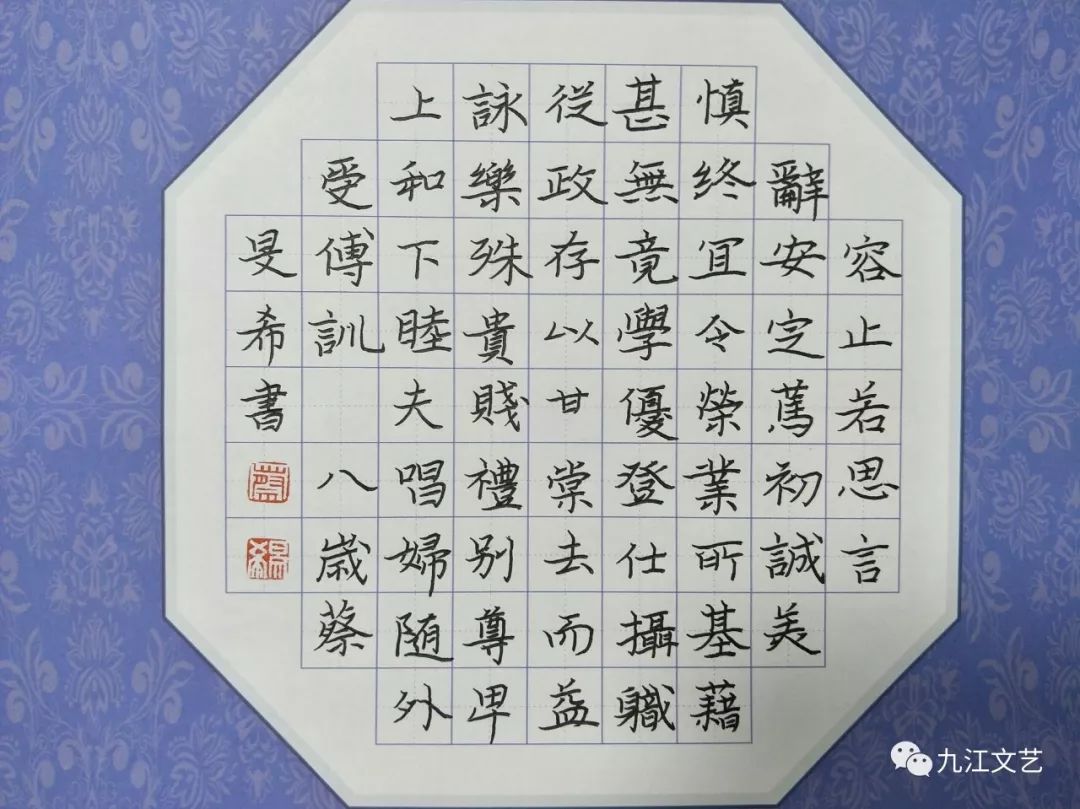 容止若思言
辭安定篤初誠美
慎終宜令榮業所基藉
甚無竟學優登仕攝職
從政存以甘棠去而益
詠樂殊貴賤禮别尊卑
上和下睦夫唱婦随外
受傅訓 八歲蔡
旻希書
九江文艺